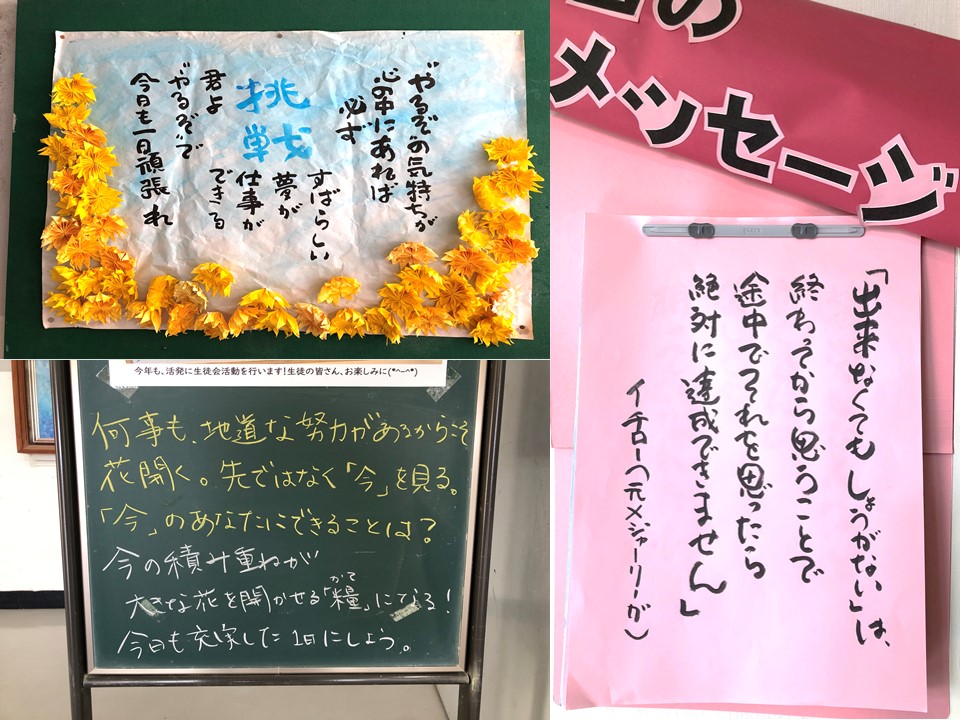 やるぞの気持ちが
心の中にあれば
必ず
すばらしい
夢が
仕事が
できる
挑戦
君よ
やるぞで
今日も一日頑張れ
の
メッセージ
「出来なくてもしょうがない」は、
終わってから思うことで
途中でそれを思ったら
絶対に達成できません」
イチロー(元メジャーリーガ)
今年も、活発に生徒会活動を行います!生徒の皆さん、お楽しみに(*^-^*)
何事も、地道な努力があるからこそ
花開く。先ではなく「今」を見る。
「今」のあなたにできることは?
今の積み重ねが
大きな花を開かせる「糧」になる!
かて
今日も充実した1日にしよう。